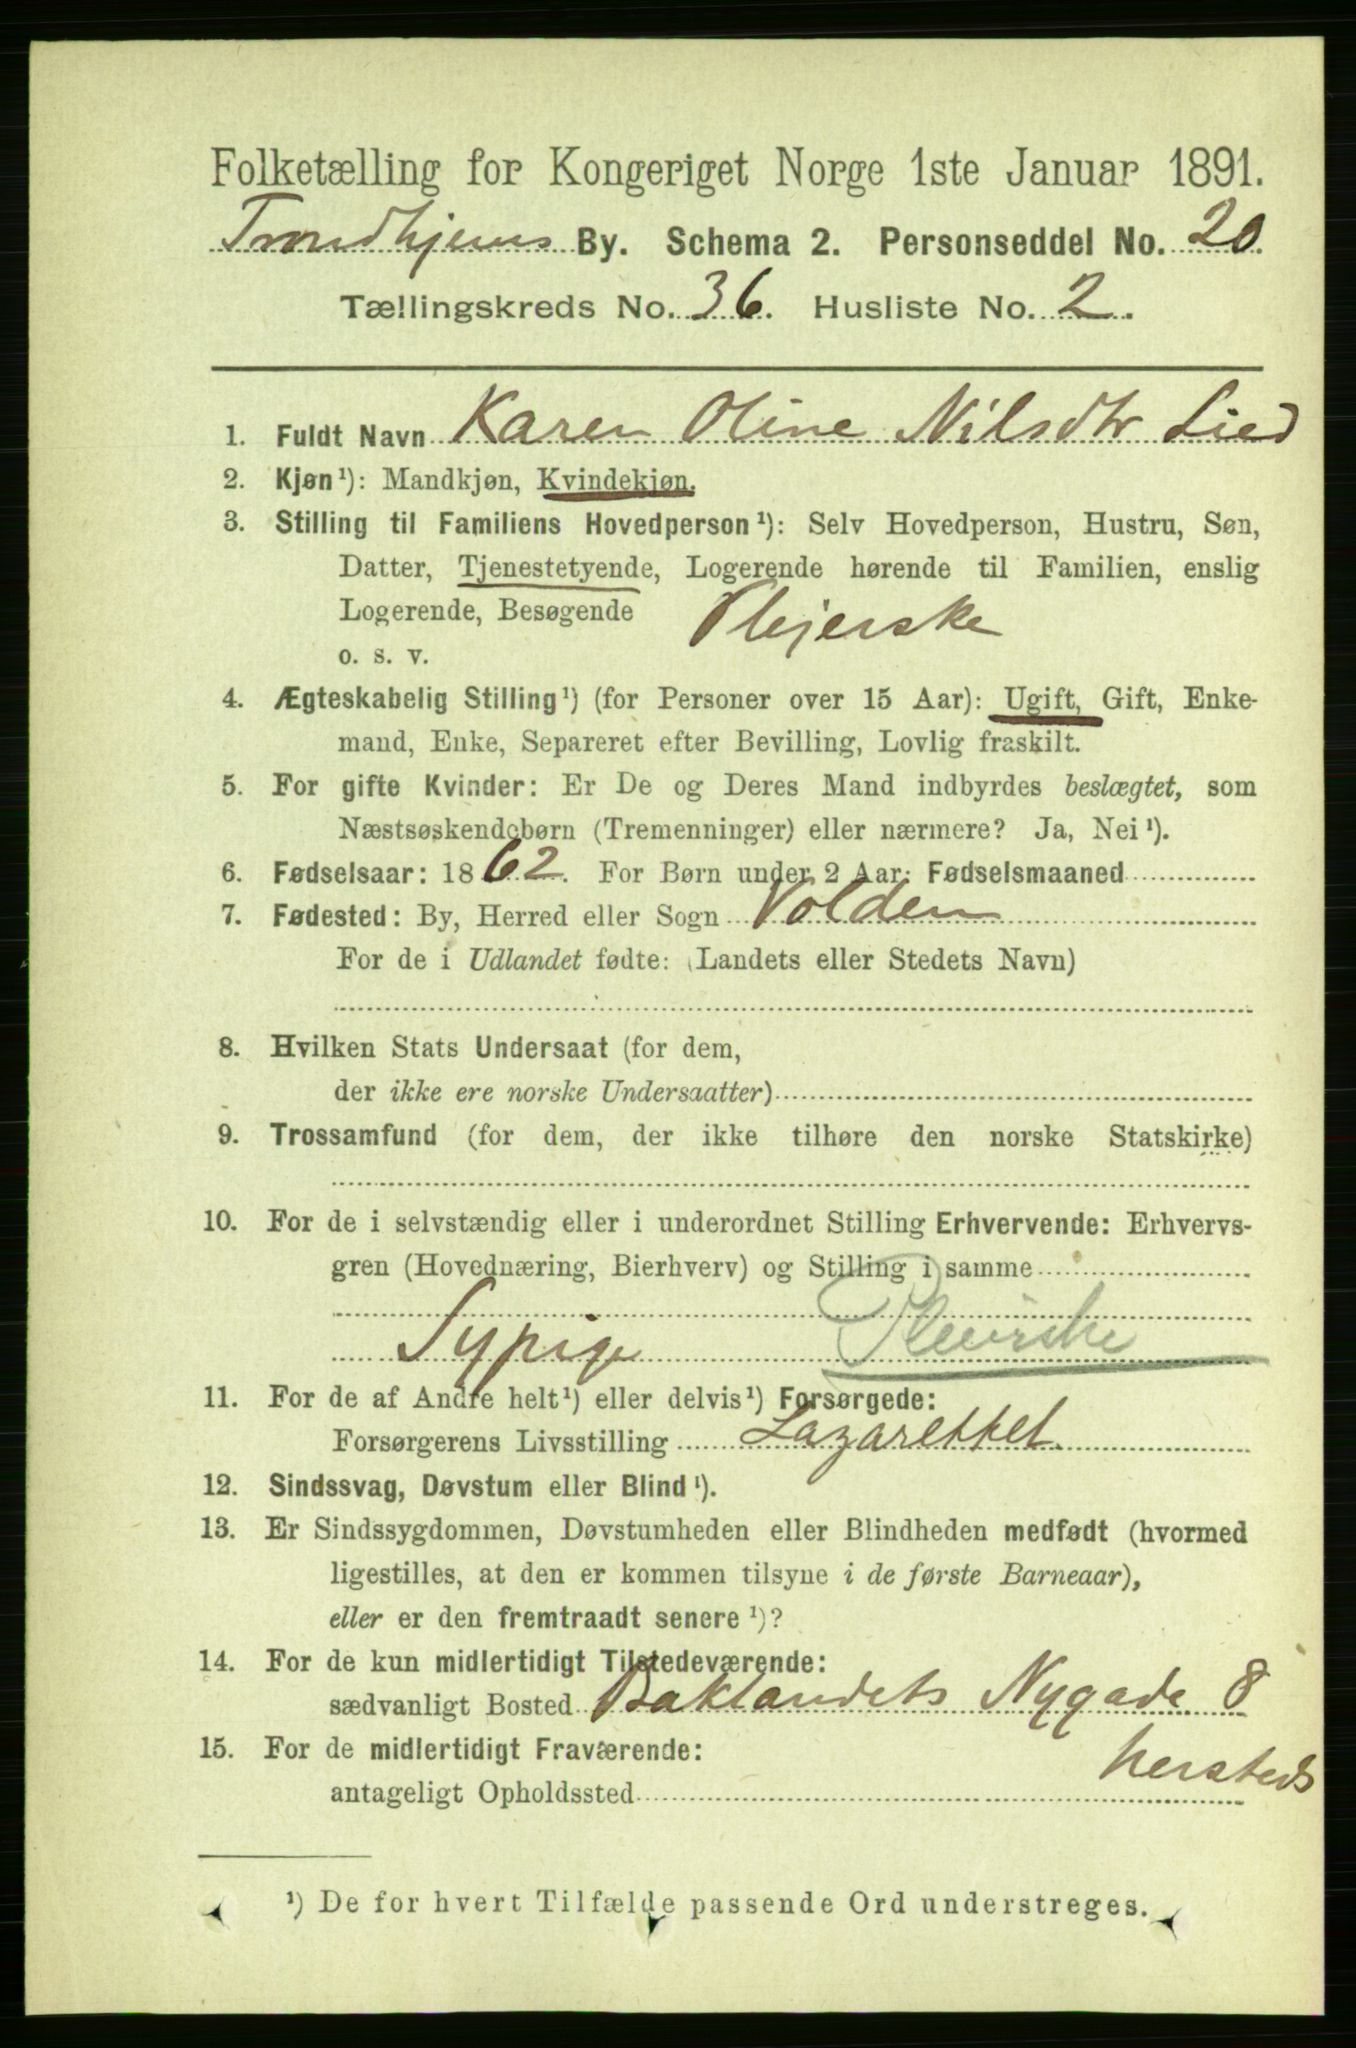 Folketælling for Kongeriget Norge 1ste Januar 1891.
Trondhjems By. Schema 2. Personseddel No. 20
Tællingskreds No. 36. Husliste No. 2.
1. Fuldt Navn Karen Oline Nilsdtr Lied
2. Kjøn¹): Mandkjøn, Kvindekjøn.
3. Stilling til Familiens Hovedperson¹): Selv Hovedperson, Hustru, Søn,
Datter, Tjenestetyende, Logerende hørende til Familien, enslig
Logerende, Besøgende Plejerske
o. s. v.
4. Ægteskabelig Stilling¹) (for Personer over 15 Aar): Ugift, Gift, Enke-
mand, Enke, Separeret efter Bevilling, Lovlig fraskilt.
5. For gifte Kvinder: Er De og Deres Mand indbyrdes beslægtet, som
Næstsøskendebørn (Tremenninger) eller nærmere? Ja, Nei¹).
6. Fødselsaar: 1862. For Børn under 2 Aar: Fødselsmaaned
7. Fødested: By, Herred eller Sogn Volden
For de i Udlandet fødte: (Landets eller Stedets Navn)
8. Hvilken Stats Undersaat (for dem,
der ikke ere norske Undersaatter)
9. Trossamfund (for dem, der ikke tilhøre den norske Statskirke)
10. For de i selvstændig eller i underordnet Stilling Erhvervende: Erhvervs-
gren (Hovednæring, Bierhverv) og Stilling i samme
Sypige Pleierske
11. For de af Andre helt¹) eller delvis¹) Forsørgede:
Forsørgerens Livsstilling Lazarettet.
12. Sindssvag, Døvstum eller Blind¹).
13. Er Sindssygdommen, Døvstumheden eller Blindheden medfødt (hvormed
ligestilles, at den er kommen tilsyne i de første Barneaar),
eller er den fremtraadt senere¹)?
14. For de kun midlertidigt Tilstedeværende:
sædvanligt Bosted Baklandets Nygade 8
15. For de midlertidigt Fraværende: hersteds
antageligt Opholdssted
¹) De for hvert Tilfælde passende Ord understreges.